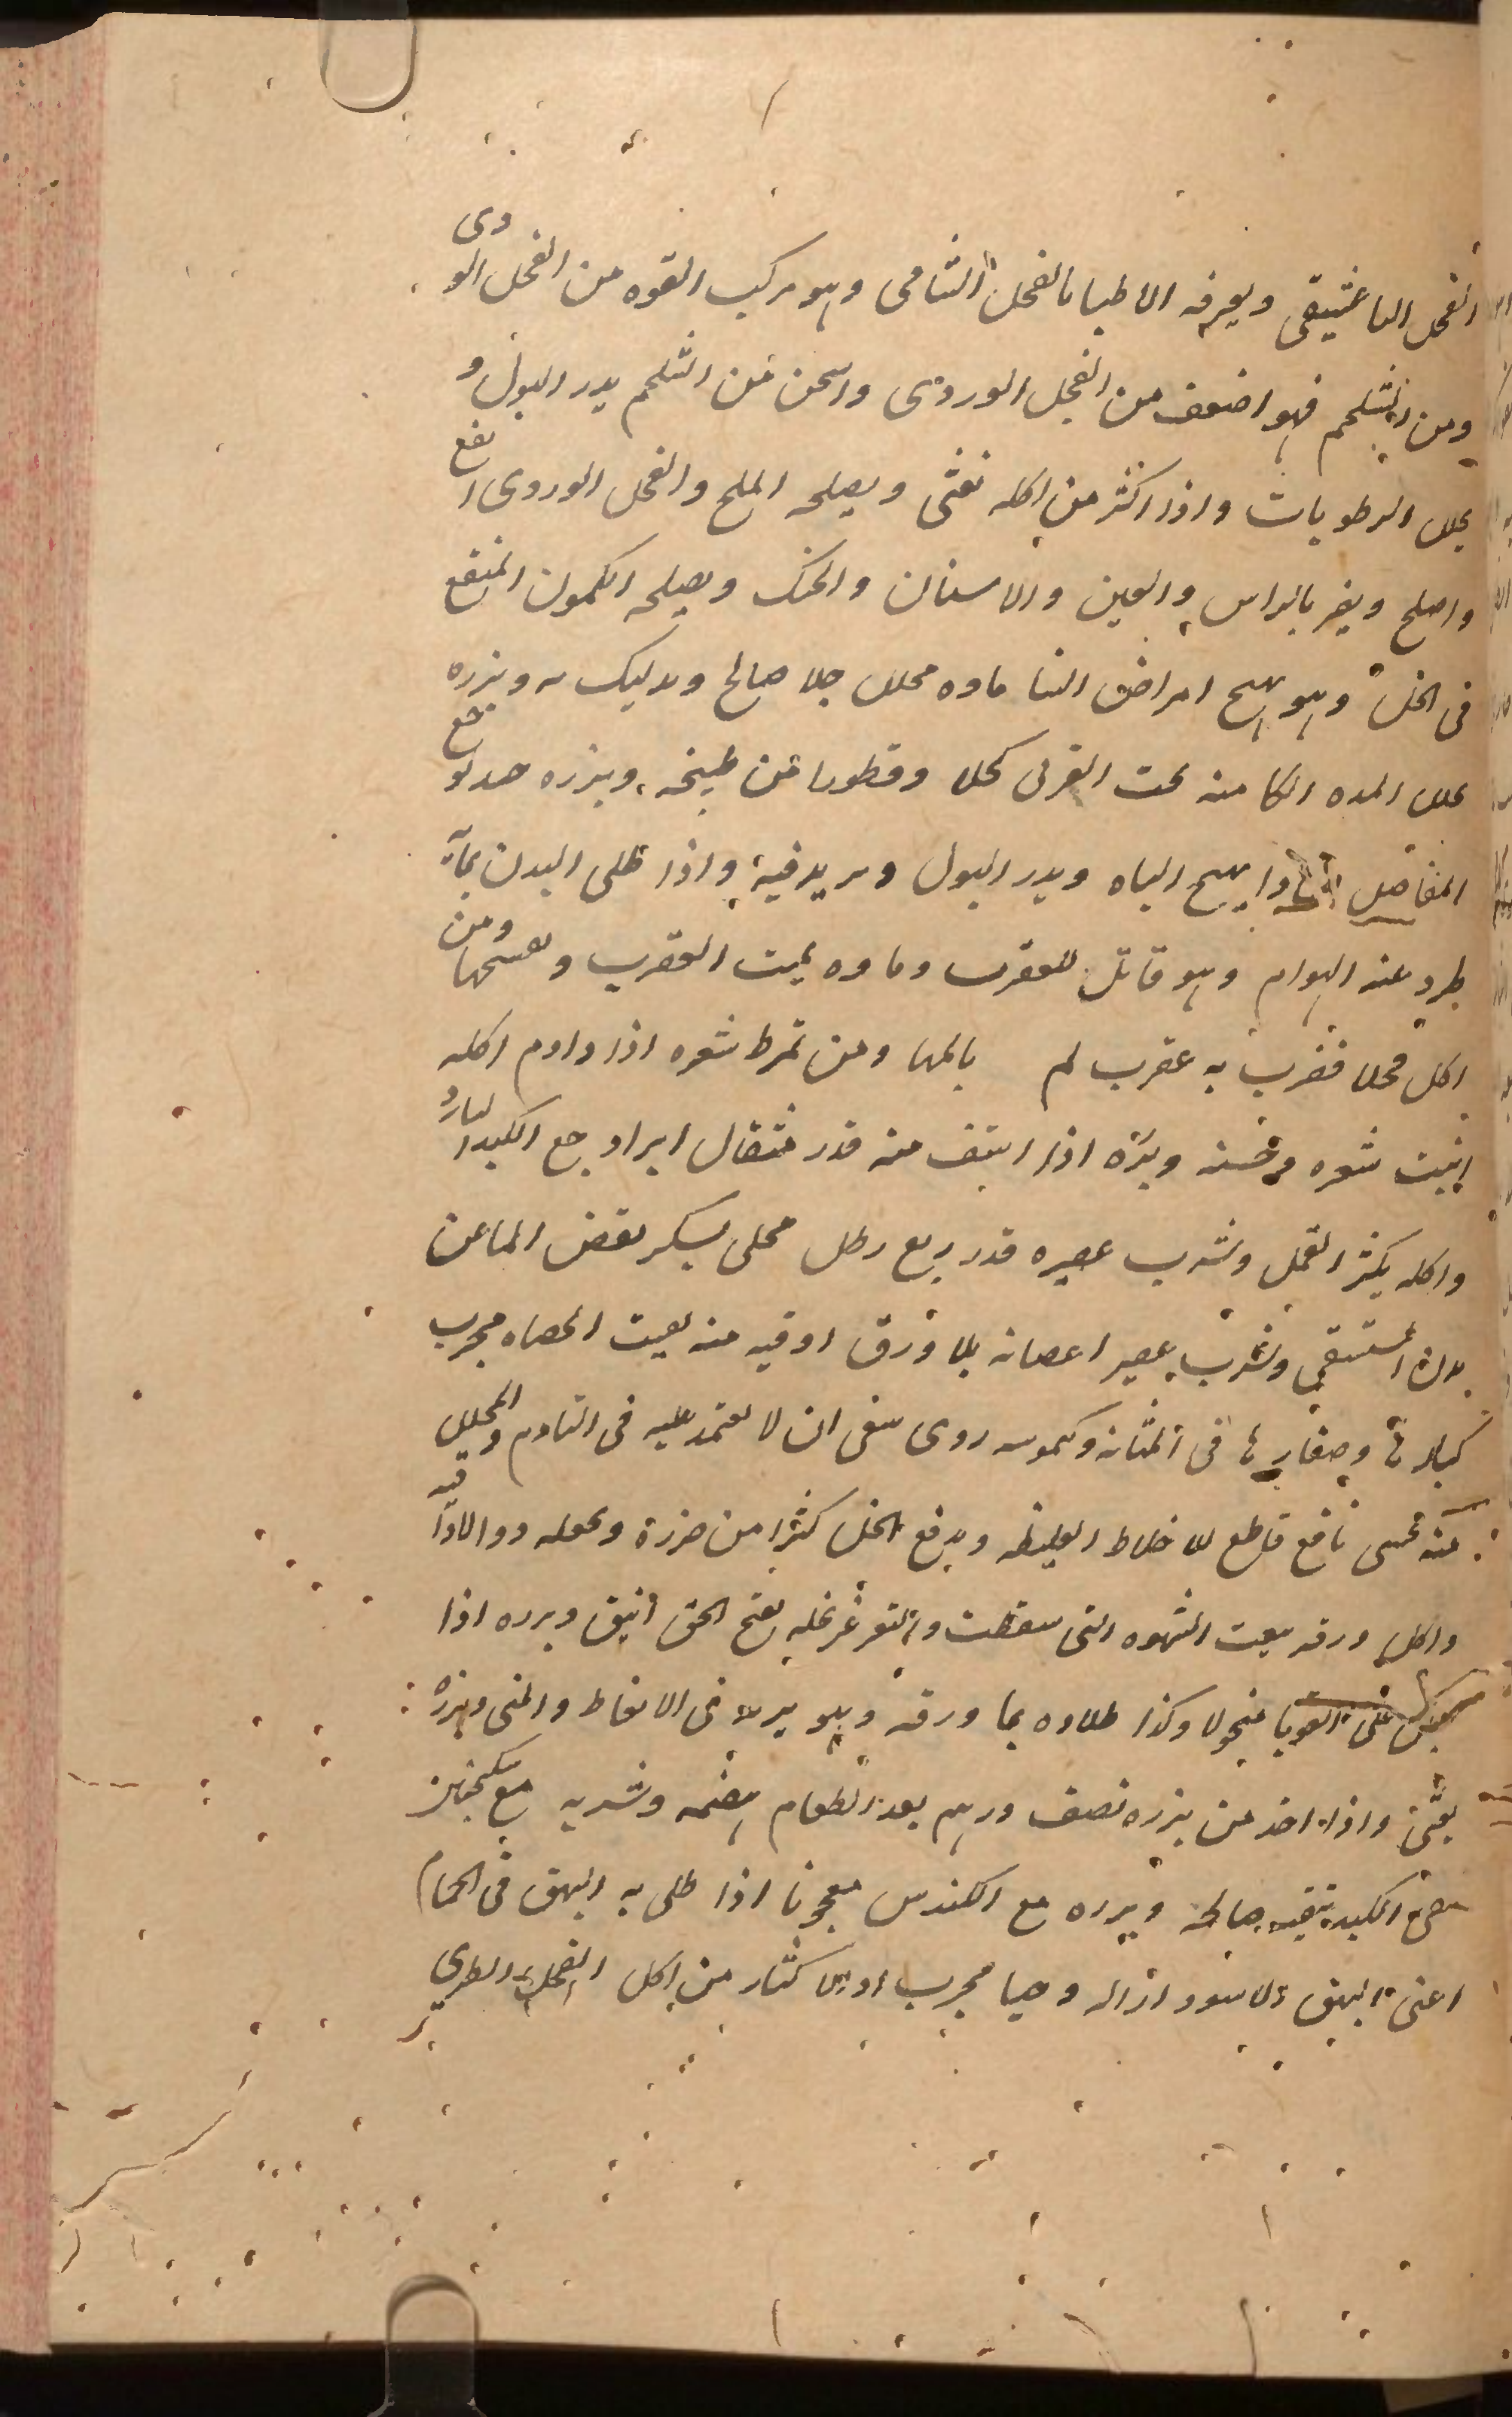 الفجل الباعشيقى ويعرفه الاطبا بالفجل الشامى وهو مركب القوه من الفجل الوردى
ومن الشلجم فهو اضعف من الفجل الوردى واسخن من الشلجم يدر البول و
يحلل الرطوبات واذا اكثر من اكله نفثى ويصلحه الملح والفجل الوردى انفع
واصلح ويضر بالراس والعين والاسنان والحنك ويصلحه الكمون المنقع
فى الخل وهو يهيج امراض النسا ماوه محلل جلا صالح وبزره
يحلل المده الكامنه تحت القرنى كحلا وقطورا من طبيخه وبزره جيد لوجع
المفاصل ويهيج الباه ويدر البول ويزيد فيه واذا طلى البدن بمآئه
طرد عنه الهوام وهو قاتل للعقرب وماوه يميت العقرب ومن
اكل فجلا فضرب به عقرب لم يالمها ومن تمرط شعره اذا داوم اكله
انبت شعره وبزره اذا استف منه قدر مثقال ابرا وجع الكبد البارد
واكله يكثر القمل وشرب عصيره قدر ربع رطل محلى بسكر نقض الما عن
بدن المستسقى وشرب عصير اغصانه بلا ورق اوقيه منه يفتت الحصاه مجرب
كبارها وصغارها فى المثانه وكيموسه ردى ينبغى ان لا يعتمد عليه فى التادم والمخلل
منه نافع قاطع للاخلاط الغليظه ويدفع الخل كثيرا من ضرره
واكل ورقه يبعث الشهوه التى سقطت والتغرغر بخله يفتح الخناق وبزره اذا
على القوبا منخولا وكذا طلاوه بما ورقه وهو يزيد فى الانعاظ والمنى وبزره
يغثى واذا اخذ من بزره نصف درهم بعد الطعام هضمه وشربه مع سكنجبين
ينقى الكبد تنقيه صالحه وبزره مع الكندس معجونا اذا طلى به البهق فى الحمام
اعنى البهق الاسود ازاله وحيا مجرب والاكثار من اكل الفجل الطرى